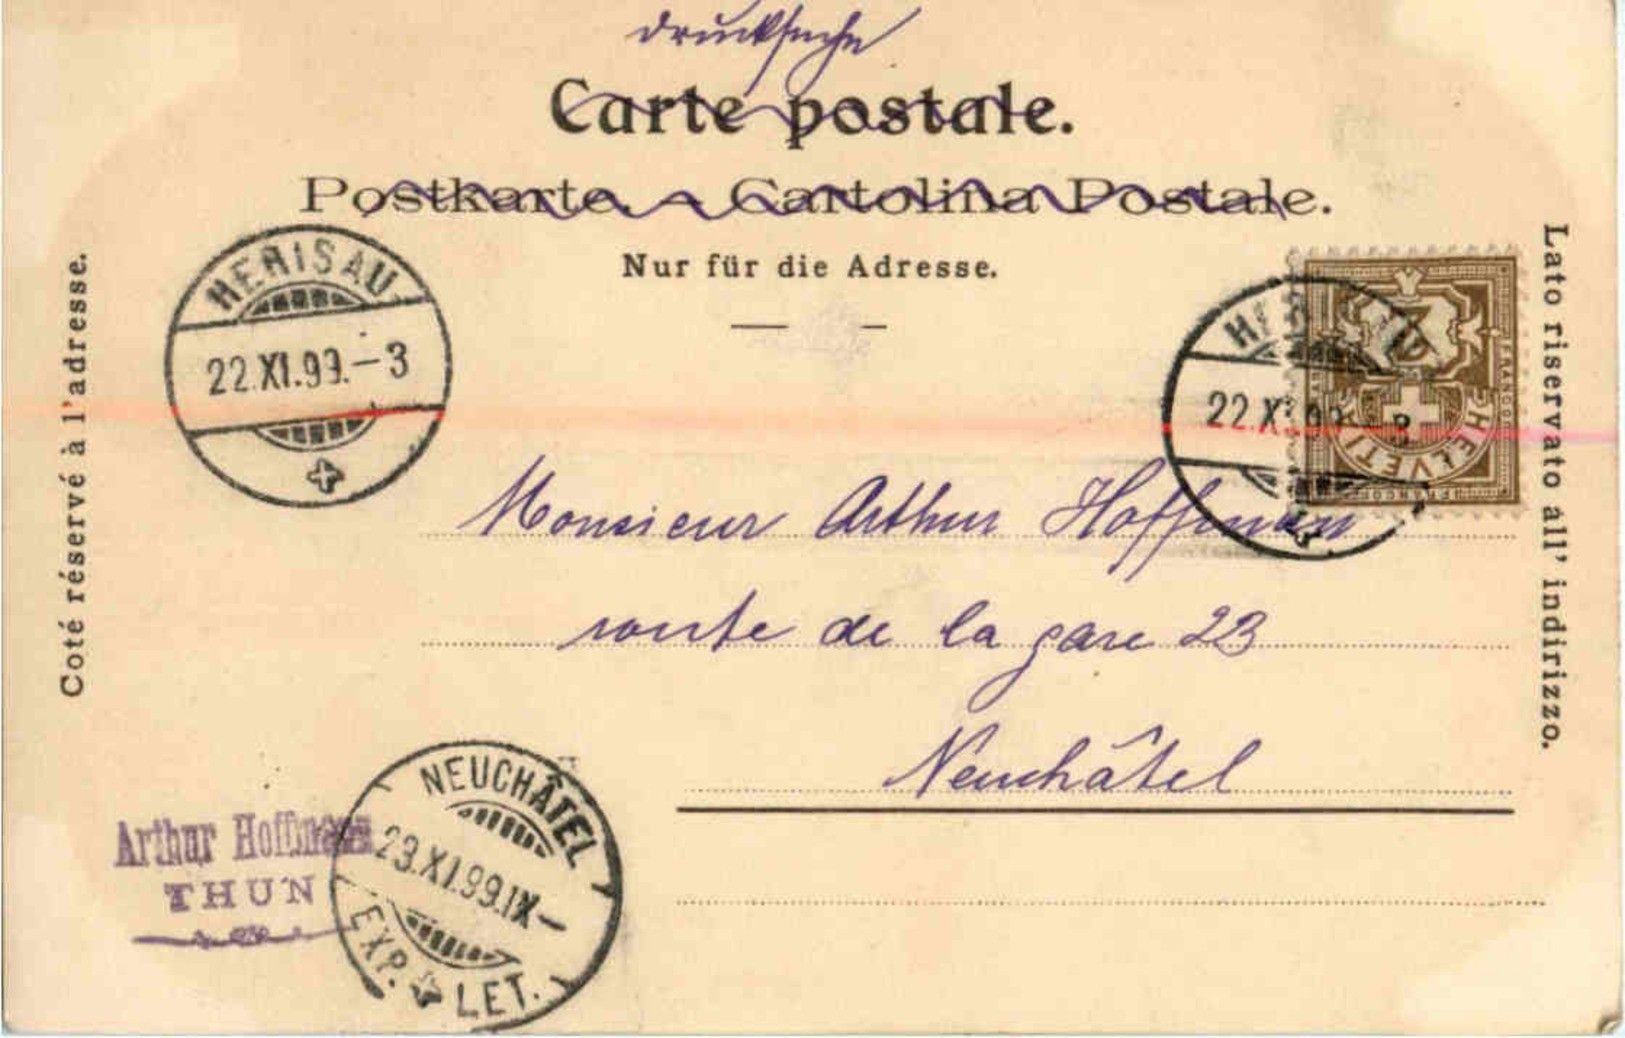 Drucksache
Carte postale.
Postkarte. - Cartolina Postale.
Nur für die Adresse.
Coté réservé à l'adresse.
Lato riservato all' indirizzo.
HERISAU
22.XI.99.-3
HELVETIA
FRANCO
22.XI.99
Monsieur Arthur Hoffmann
route de la gare 23
Neuchâtel
NEUCHÂTEL
23.XI.99.IX-
EXP. LET.
Arthur Hoffmann
THUN